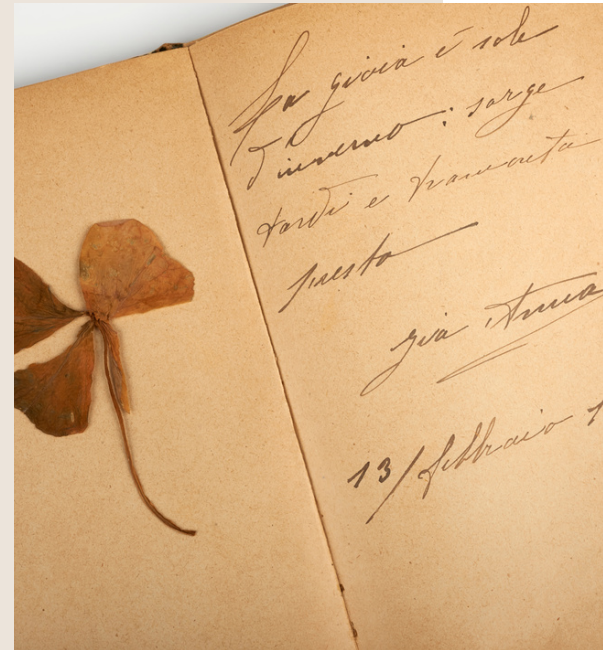 La gioia è sole
d'inverno: sorge
tardi e tramonta
presto
Zia Anna
13/febbraio 1